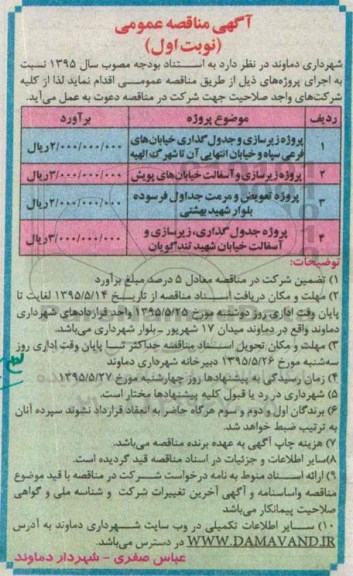 آگهی مناقصه عمومی
(نوبت اول)
شهرداری دماوند در نظر دارد به استناد بودجه مصوب سال ۱۳۹۵ نسبت
به اجرای پروژه‌های ذیل از طریق مناقصه عمومی اقدام نماید لذا از کلیه
شرکت‌های واجد صلاحیت جهت شرکت در مناقصه دعوت به عمل می‌آید.
ردیف موضوع پروژه برآورد
۱ پروژه زیرسازی و جدول گذاری خیابان‌های فرعی سپاه و خیابان انتهایی آن تا شهرک الهیه ۲/۰۰۰/۰۰۰/۰۰۰ریال
۲ پروژه زیرسازی و آسفالت خیابان‌های پویش ۳/۰۰۰/۰۰۰/۰۰۰ریال
۳ پروژه تعویض و مرمت جداول فرسوده بلوار شهید بهشتی ۲/۰۰۰/۰۰۰/۰۰۰ریال
۴ پروژه جدول گذاری، زیرسازی و آسفالت خیابان شهید تندگویان ۳/۰۰۰/۰۰۰/۰۰۰ریال
توضیحات:
۱) تضمین شرکت در مناقصه معادل ۵ درصد مبلغ برآورد
۲) مهلت و مکان دریافت اسناد مناقصه از تاریخ ۱۳۹۵/۵/۱۴ لغایت تا
پایان وقت اداری روز دوشنبه مورخ ۱۳۹۵/۵/۲۵ واحد قراردادهای شهرداری
دماوند واقع در دماوند میدان ۱۷ شهریور ـ بلوار شهرداری می‌باشد.
۳) مهلت و مکان تحویل اسناد مناقصه حداکثر تا پایان وقت اداری روز
سه‌شنبه مورخ ۱۳۹۵/۵/۲۶ دبیرخانه شهرداری دماوند
۴) زمان رسیدگی به پیشنهادها روز چهارشنبه مورخ ۱۳۹۵/۵/۲۷
۵) شهرداری در رد یا قبول کلیه پیشنهادها مختار است.
۶) برندگان اول و دوم و سوم هرگاه حاضر به انعقاد قرارداد نشوند سپرده آنان
به ترتیب ضبط خواهد شد.
۷) هزینه چاپ آگهی به عهده برنده مناقصه می‌باشد.
۸)سایر اطلاعات و جزئیات در اسناد مناقصه قید گردیده است.
۹) ارائه اسناد منوط به نامه درخواست شرکت در مناقصه با قید موضوع
مناقصه واساسنامه و آگهی آخرین تغییرات شرکت و شناسه ملی و گواهی
صلاحیت پیمانکار می‌باشد
۱۰) سایر اطلاعات تکمیلی در وب سایت شهرداری دماوند به آدرس
WWW.DAMAVAND.IR در دسترس می‌باشد.
عباس صفری - شهردار دماوند